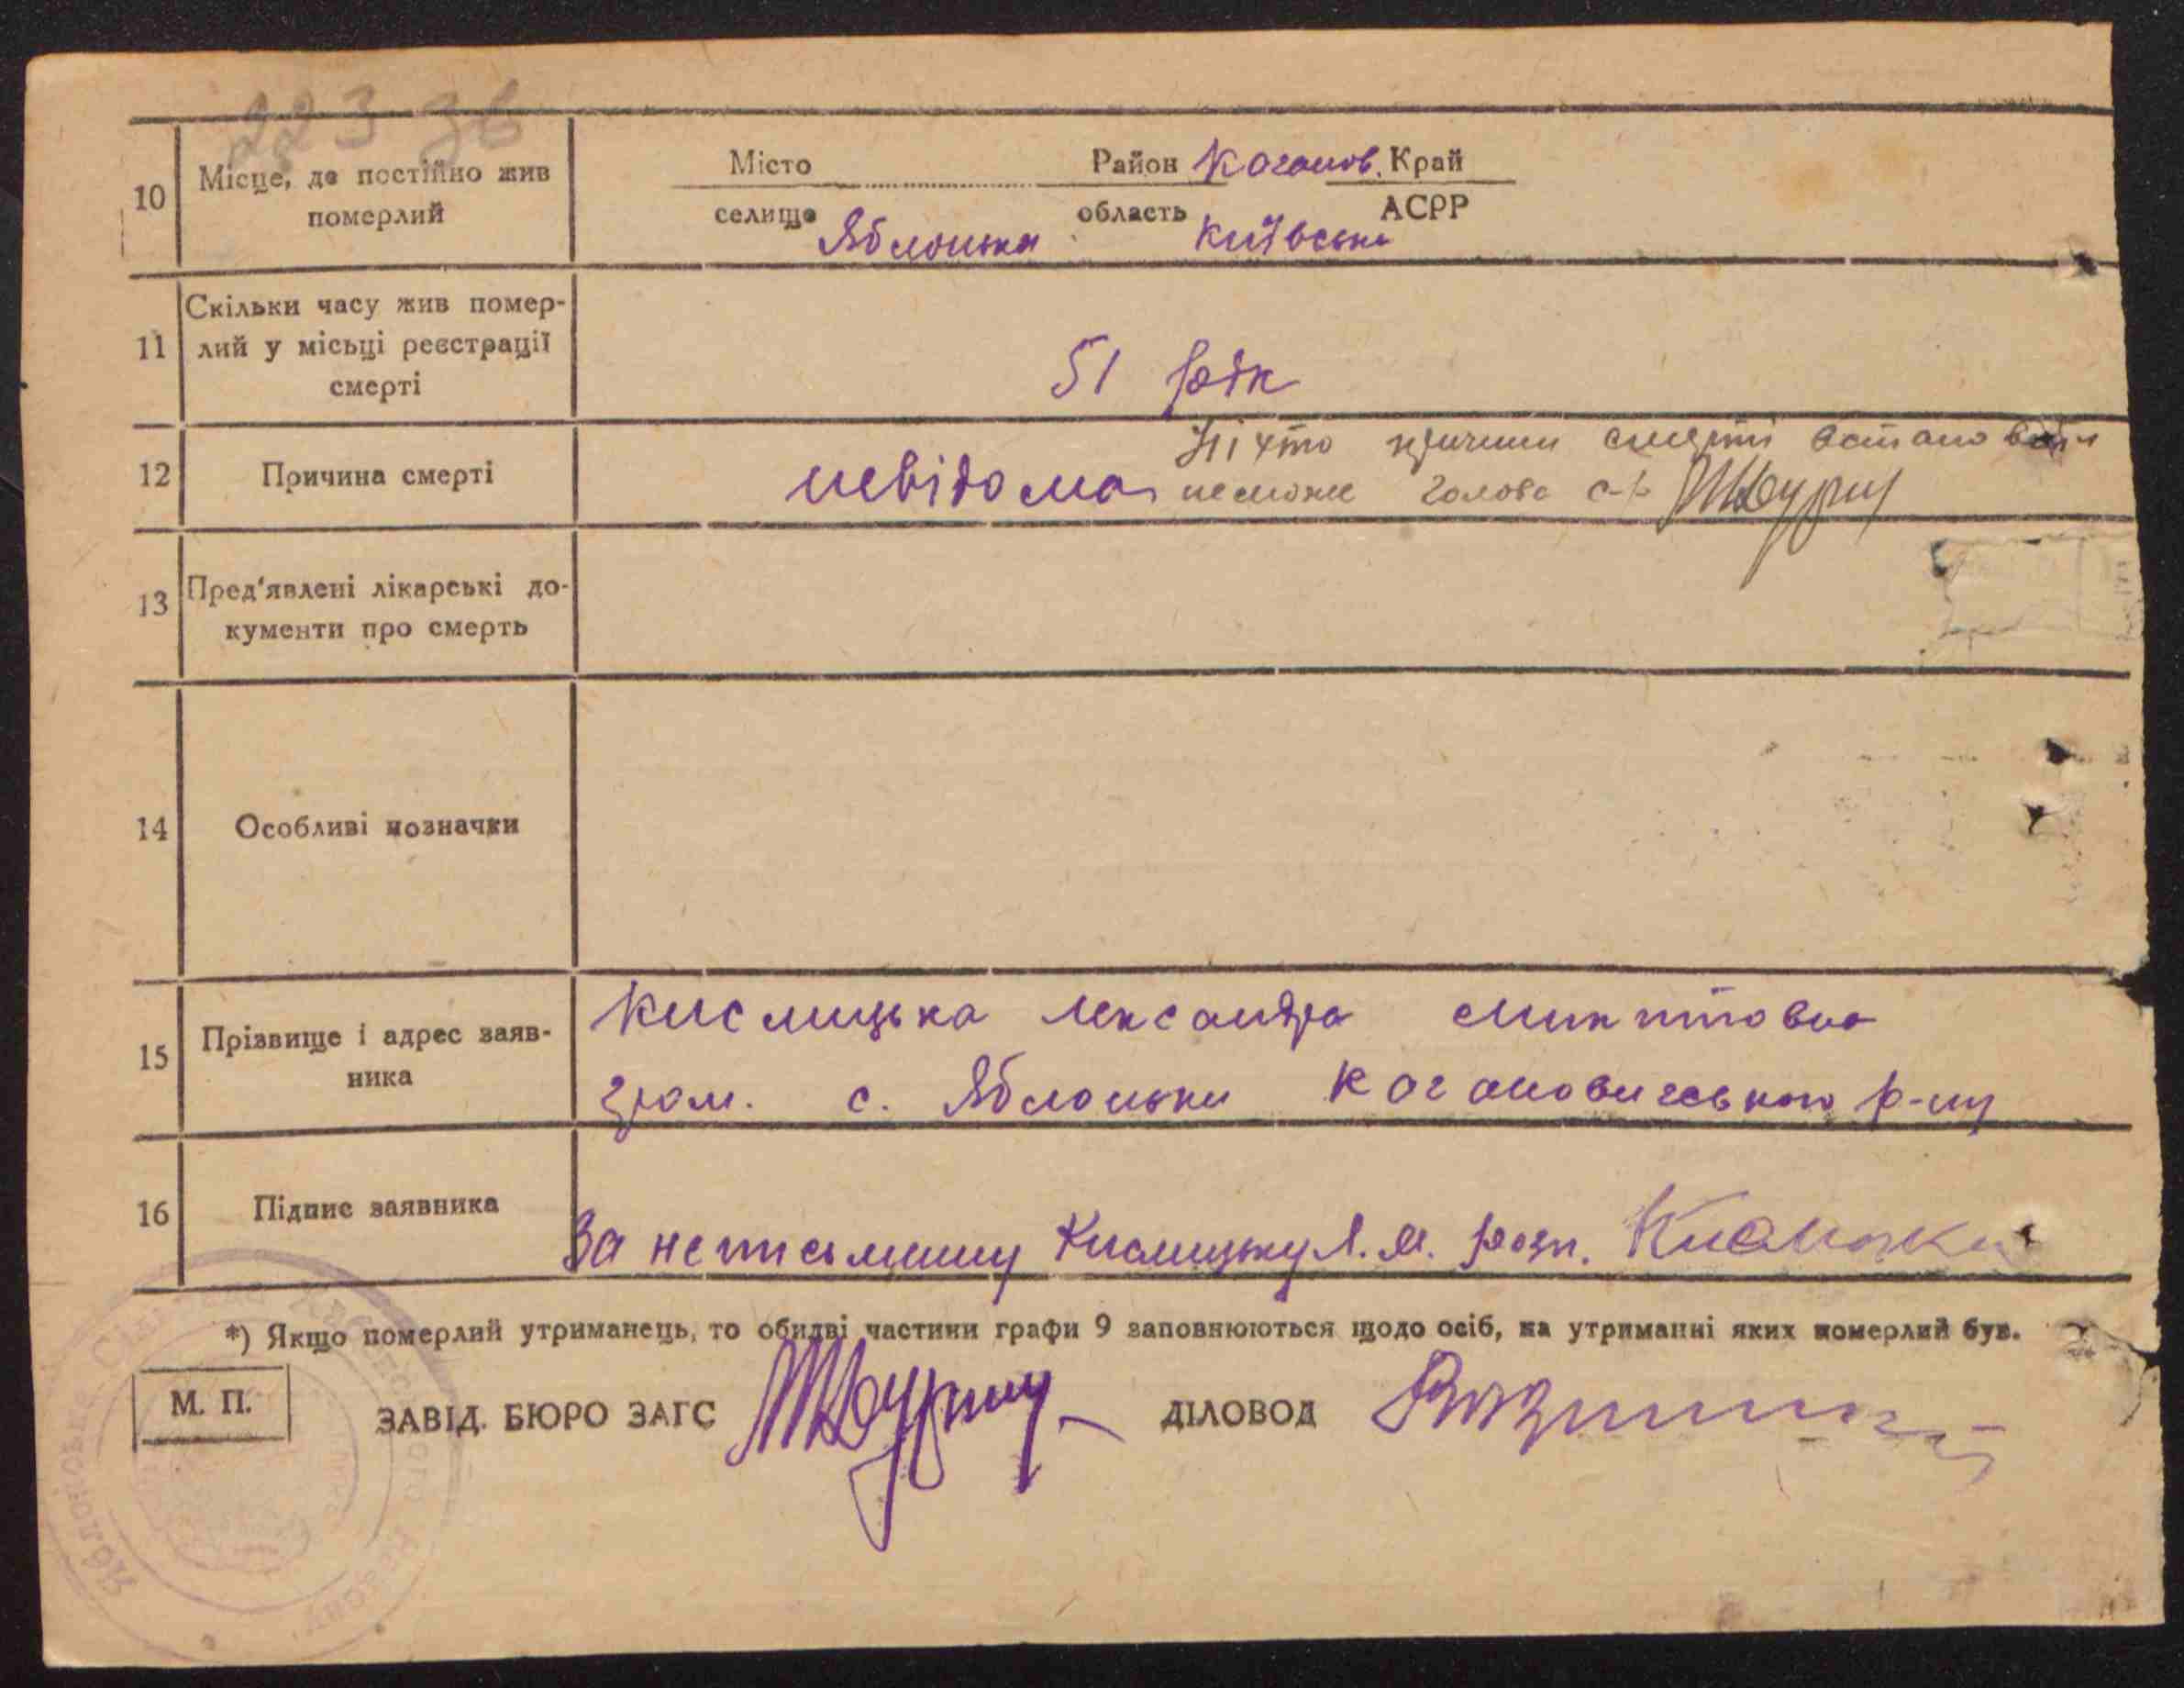 223 36
10
Місце, де постійно жив
померлий
Місто Район Каганов. Край
селище Яблонька область Київська АСРР
11
Скільки часу жив помер-
лий у місьці реєстрації
смерті
51 рік
12
Причина смерті
невідома
Ніхто причини смерті встановити
неможе голова с-р
13
Пред'явлені лікарські до-
кументи про смерть
14
Особливі позначки
15
Прізвище і адрес заяв-
ника
Кислицька Лександра Микитовна
гром. с. Яблоньки Кагановичського р-ну
16
Підпис заявника
За неписьменну Кислицьку Л. М. розп.
*) Якщо померлий утриманець, то обидві частини графи 9 заповнюються щодо осіб, на утриманні яких померлий був.
М. П.
ЗАВІД. БЮРО ЗАГС
ДІЛОВОД